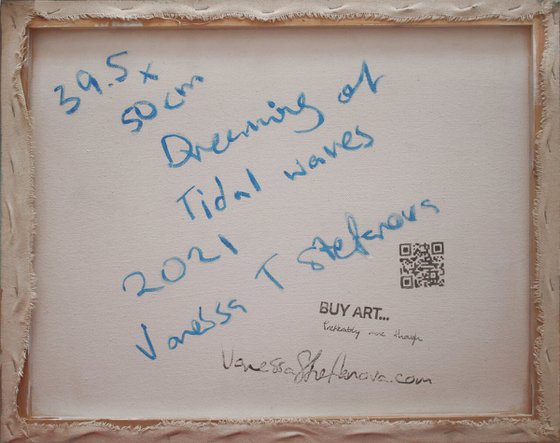 39.5 x
50 cm
Dreaming of
Tidal waves
2021
Vanessa T Stefanova
BUY ART...
Preferably mine though
VanessaStefanova.com